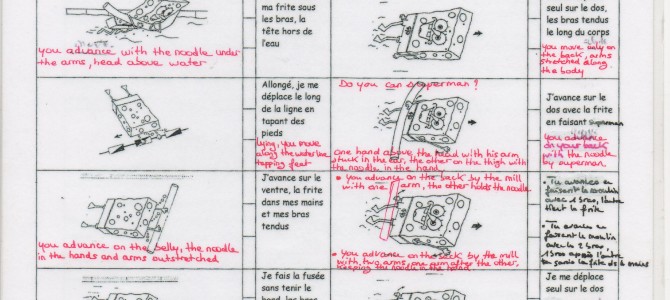 ma frite sous
les bras, la
tête hors de
l'eau
you advance with the noodle under
the arms, head above water
seul sur le dos,
les bras tendus
le long du corps
you move only on
the back, arms
stretched along
the body
Allongé, je me
déplace le long
de la ligne en
tapant des
pieds
lying, you move
along the water line
tapping feet
Do you can superman?
one hand above the head with his arm
stuck in the ear, the other on the thigh with
the noodle in the hand
J'avance sur le
dos avec la frite
en faisant superman
you advance
on your back
with the noodle
by superman.
J'avance sur le
ventre, la frite
dans mes mains
et mes bras
tendus
you advance on the belly, the noodle
in the hands and arms outstretched
• you advance on the back by the mill
with one arm, the other holds the noodle
• you advance on the back by the mill
with two arms, one arm after the other.
keeping the noodle in the hand
• Tu avances en
faisant le moulin
avec 1 bras, l'autre
tient la frite
• Tu avances en
faisant le moulin
avec le 2 bras,
1 bras après l'autre
Je fais la fusée
sans tenir le
Je me déplace
seul sur le dos